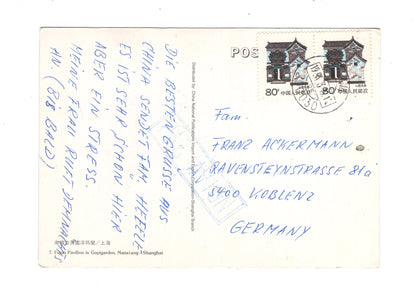 DIE BESTEN GRÜSSE AUS
CHINA SENDET FAM.
ES IST SEHR SCHÖN HIER
ABER EIN STRESS.
MEINE FRAU RUFT DEMNÄCHST
AN (BIS BALD)
POS
Distributed by China National Publications Import and Export Corporation Shanghai Branch
80分 中国人民邮政
80分 中国人民邮政
Fam.
FRANZ ACKERMANN
RAVENSTEYNSTRASSE 81a
5400 KOBLENZ
GERMANY
Pavilion in Guyigarden, Nanxiang / Shanghai